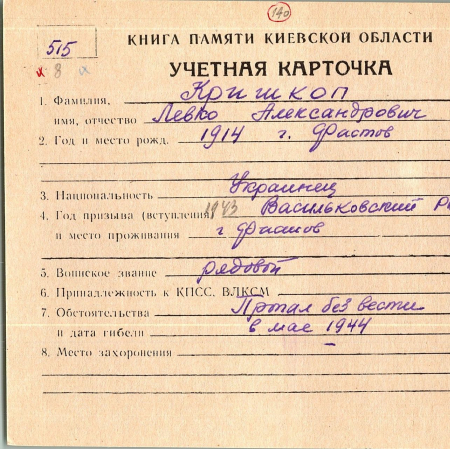 140
515
КНИГА ПАМЯТИ КИЕВСКОЙ ОБЛАСТИ
8
УЧЕТНАЯ КАРТОЧКА
1. Фамилия, Кришкоп
имя, отчество Левко Александрович
2. Год и место рожд. 1914 г. Фастов
3. Национальность Украинец
4. Год призыва (вступления) 1943 Васильковский
и место проживания г Фастов
5. Воинское звание рядовой
6. Принадлежность к КПСС, ВЛКСМ
7. Обстоятельства Пропал без вести
и дата гибели в мае 1944
8. Место захоронения –